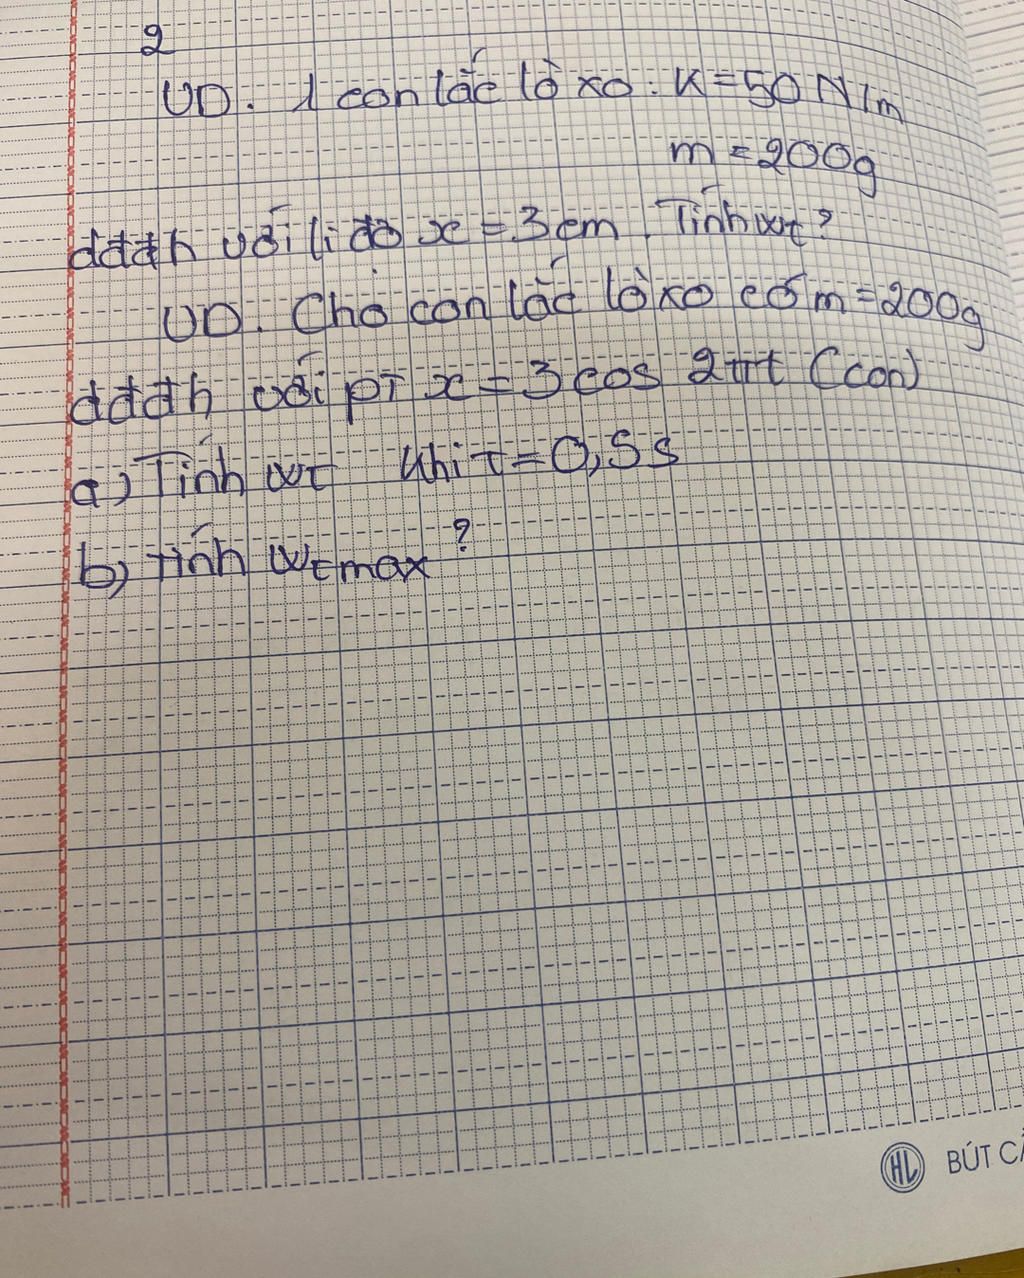 2
VD. 1 con lắc lò xo: K=50 N/m
m=200g
dđđh với li độ x=3cm. Tính Wt?
VD. Cho con lắc lò xo có m=200g
dđđh với pt x=3cos 2πt (cm)
a) Tính Wt khi t=0,5s
b) Tính Wtmax?
HL BÚT